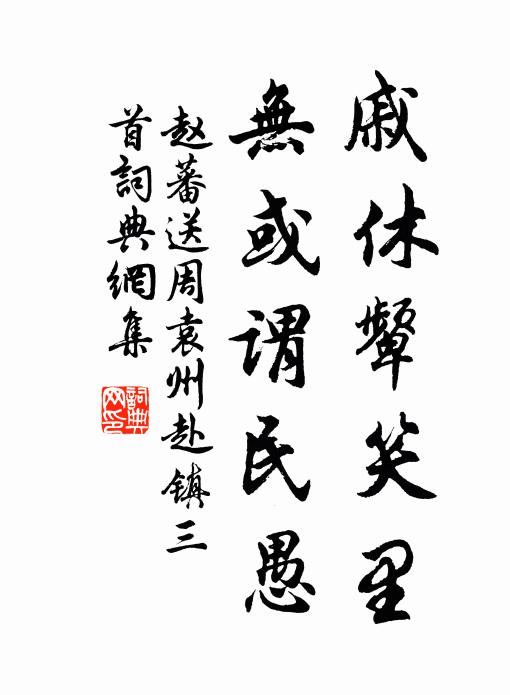 戚休顰笑里
無或謂民愚
赵蕃送周袁州赴鎮三
首詞典網集
詞典
网印